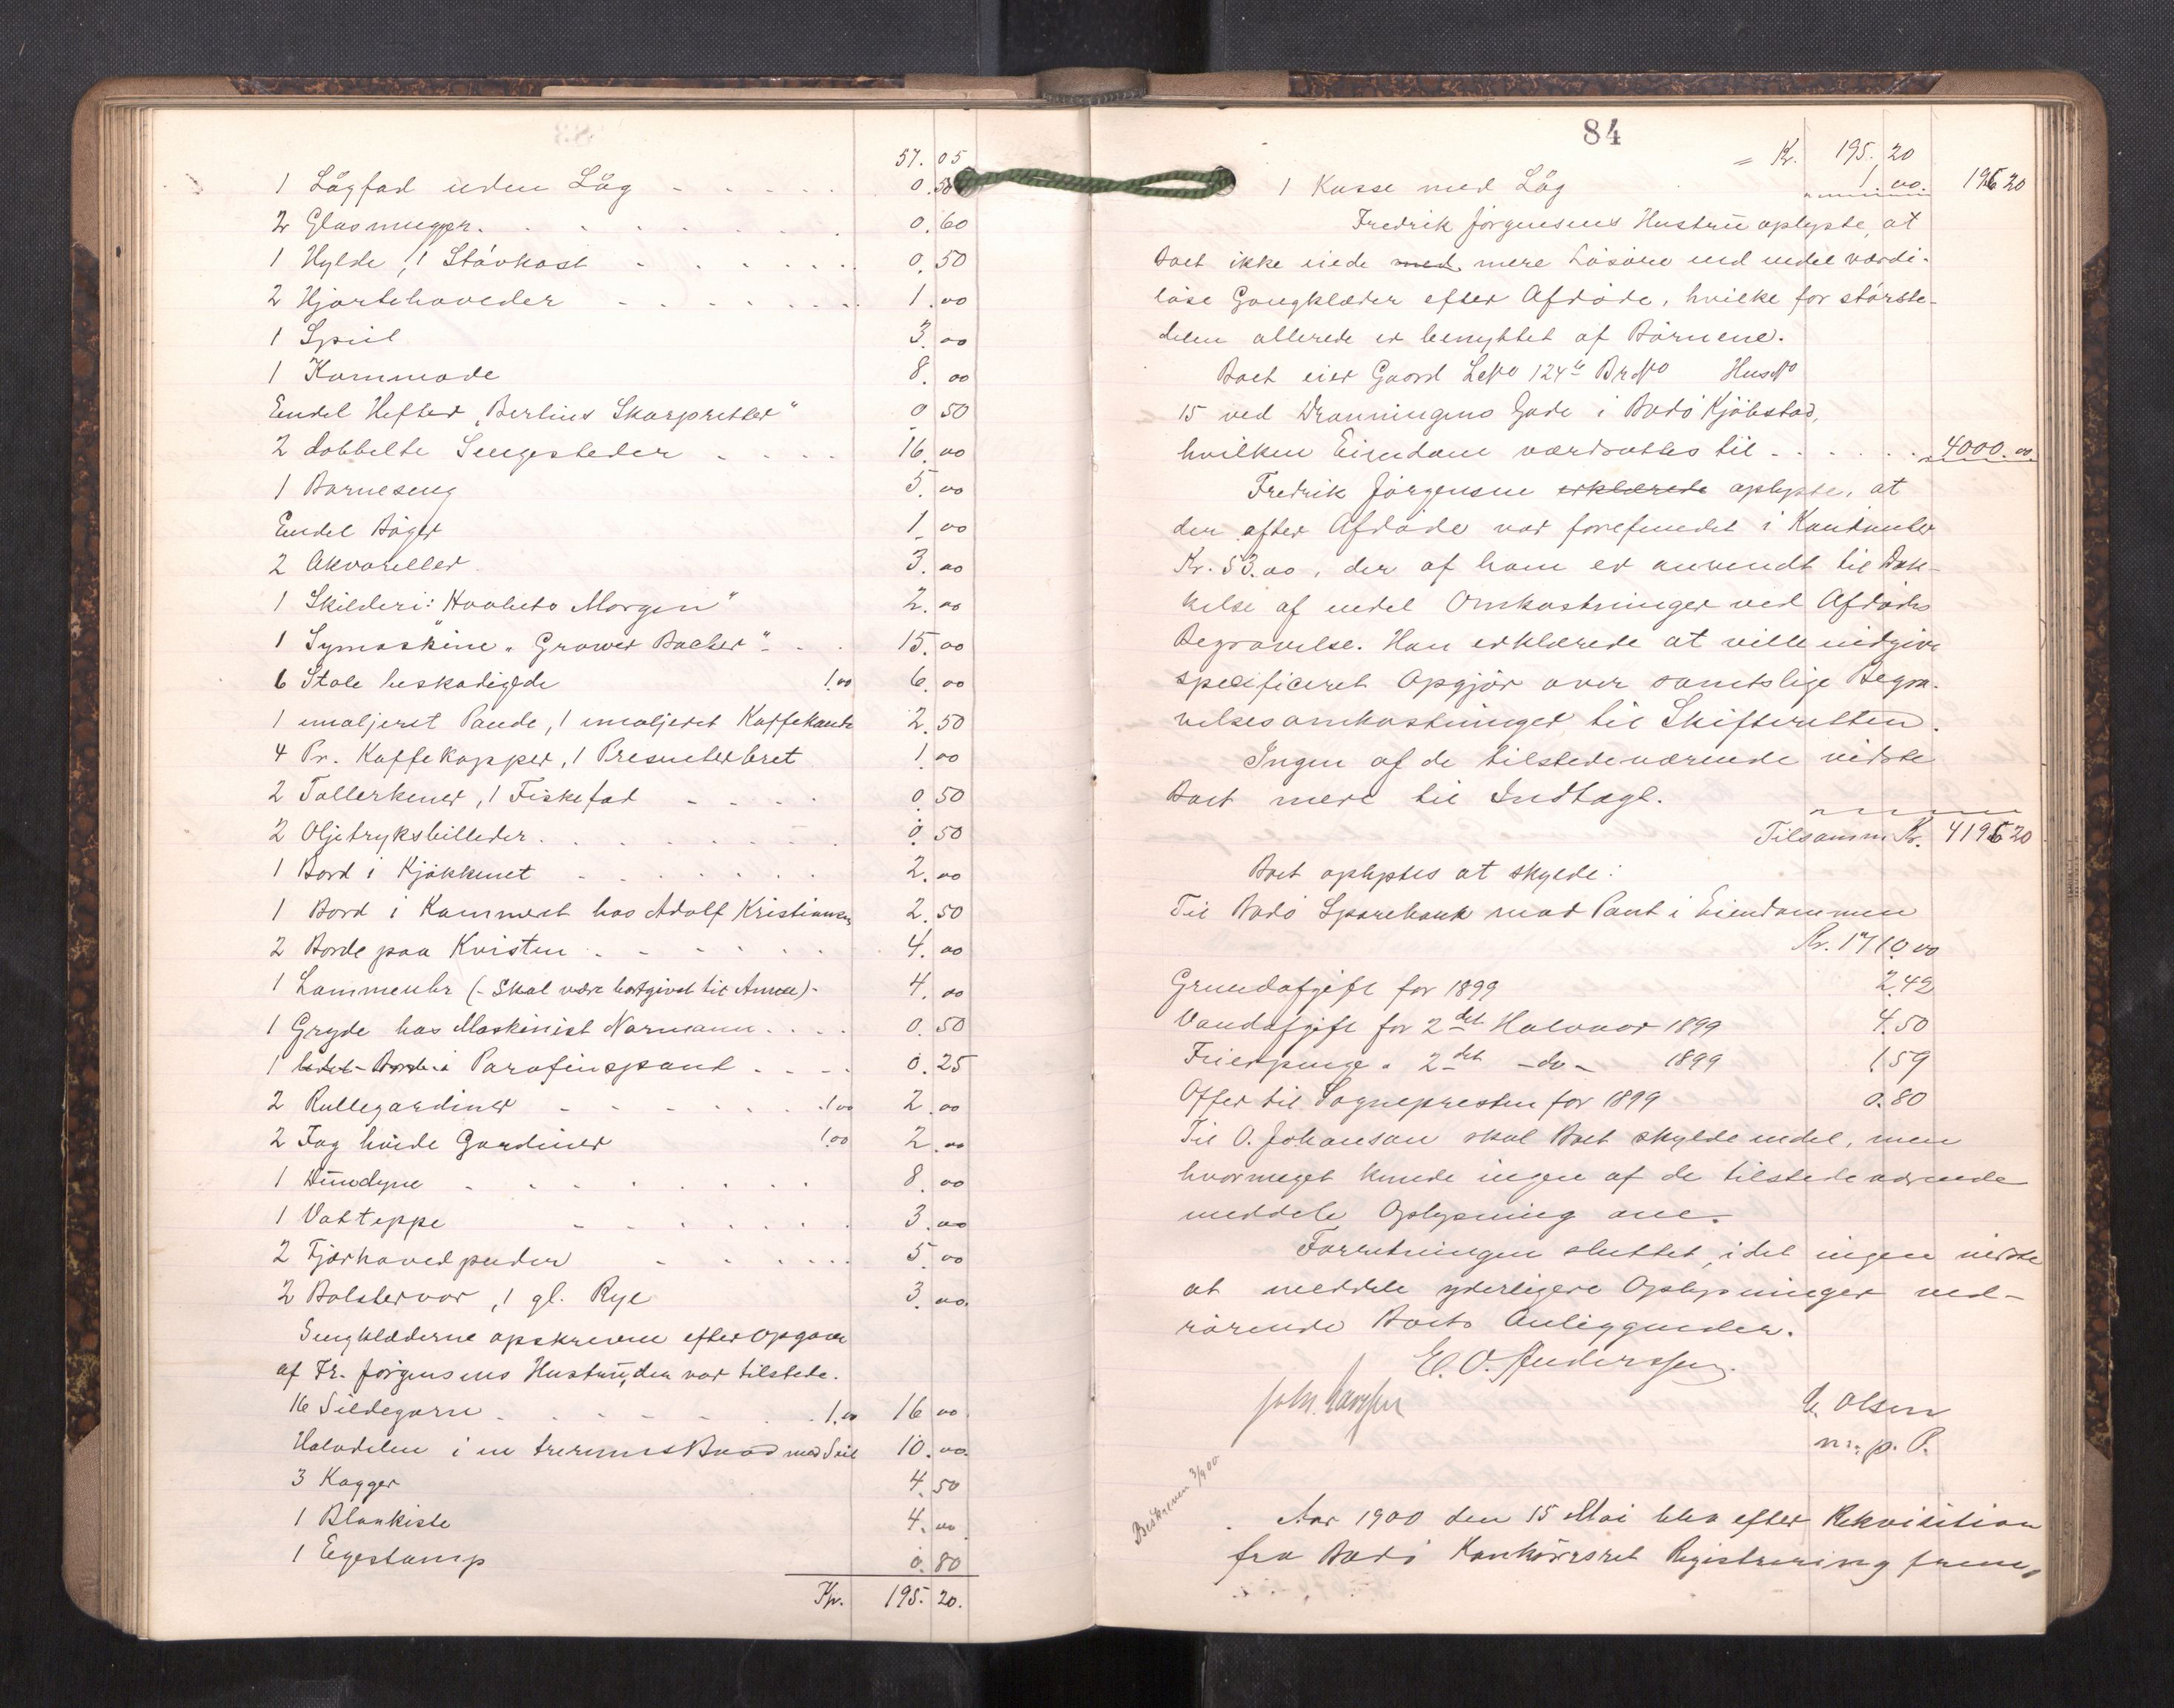 57.05
1 Lågfad uden Låg - - - - - 0.50
2 Glasmugger. 0.60
1 Hylde, 1 Støvkost - - - 0.50
2 Hjortehoveder - - - - 1.00
1 Speil 3.00
1 Kommode 8.00
Endel Hefter „Berlins Skarpretter" 0 50
2 dobbelte Sengesteder - - - - 16.00
1 Barneseng 5.00
Endel Bøger 1.00
2 Akvareller 3.00
1 Skilderi: "Havluts Morgen" 2.00
1 Symaskine „Grower Backer". - 15.00
6 Stole beskadigede 1.00 6.00
1 emaljeret Pande, 1 emaljeret Kaffekande 2.50
4 Pr. Kaffekopper, 1 Presenterbret 1.00
2 Tallerkener, 1 Fiskefad - - - - 0.50
2 Oljetryksbilleder. 0.50
1 Bord i Kjøkkenet - - - - 2.00
1 Bord i Kammert hos Adolf Kristiansen 2.50
2 Borde paa Kvisten - - - - 4.00
1 Lommeuhr (- Skal være bortgivet til Anna) - 4.00
1 Gryde hos Maskinist Normann. . . . 0.50
1 Parafinspand . . . - 0.25
2 Rullegardiner - - - - 1.00 2.00
2 Fag hvide Gardiner 1.00 2.00
1 Dundyne - - - - 8.00
1 Vatteppe - - - - 3.00
2 Fjærhovedpuder - - - - 5.00
2 Bolstervar, 1 gl. Rye 3.00.
Sengklæderne opskreven efter Opgave
af Fr. Jørgensens Hustru, der var tilstede.
16 Sildegarn - - - - 1.00 16.00
Halvdelen i en treroms Baad med Seil 10.00.
3 Kagger 4.50
1 Blankiste 4.00
1 Egestamp 0.80
Kr. 195.20.
84
= Kr. 195.20
1 Kasse med Låg 1.00. 196 20
Fredrik Jørgensens Hustru oplyste, at
Boet ikke eiede med mere Løsøre end endel værdi-
løse Gangklæder efter Afdøde, hvilke for største-
delen allerede er benyttet af Børnene.
Boet eier Gaard LNo 124a BrNo HusNo
15 ved Dronningens Gade i Bodø Kjøbstad,
hvilken Eiendom værdsattes til - . . . . 4000.00
Fredrik Jørgensen erklærede oplyste, at
der efter Afdøde var forefundet i Kontanter
Kr. 53.00, der af ham er anvendt til Dæk-
kelse af endel Omkostninger ved Afdødes
Begravelse. Han erklærede at ville indgive
specificeret Opgjør over samtlige Begra-
velsesomkostninger til Skifteretten.
Ingen af de tilstedeværende vidste
Boet mere til Indtægt.
Tilsamm. Kr. 4196 20
Boet oplystes at skylde:
Til Bodø Sparebank mod Pant i Eiendommen
Kr. 1710.00
Grundafgift for 1899 2.42
Vandafgift for 2det Halvaar 1899 4.50
Feierpenge " 2det -do- 1899 1.59
Offer til Sognepresten for 1899 0.80
Til O. Johansan skal Boet skylde endel, men
hvormeget kunde ingen af de tilstedeværende
meddele Oplysning om.
Forretningen sluttet, idet ingen vidste
at meddele yderligere Oplysninger ved-
rørende Boets Anliggender.
E. O. Anderssen.
Joh. Larssen
E. Olsen
m. p. P.
Beskreven 3/900
Aar 1900 den 15 Mai blev efter Rekvisition
fra Bodø Konkursret Registrering frem,